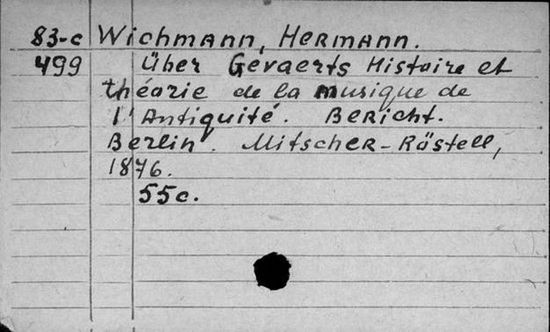 83-c Wichmann, Hermann.
499 Über Gevaerts Histoire et
théorie de la musique de
l'Antiquité. Bericht.
Berlin. Mitscher-Röstell,
1876.
55c.